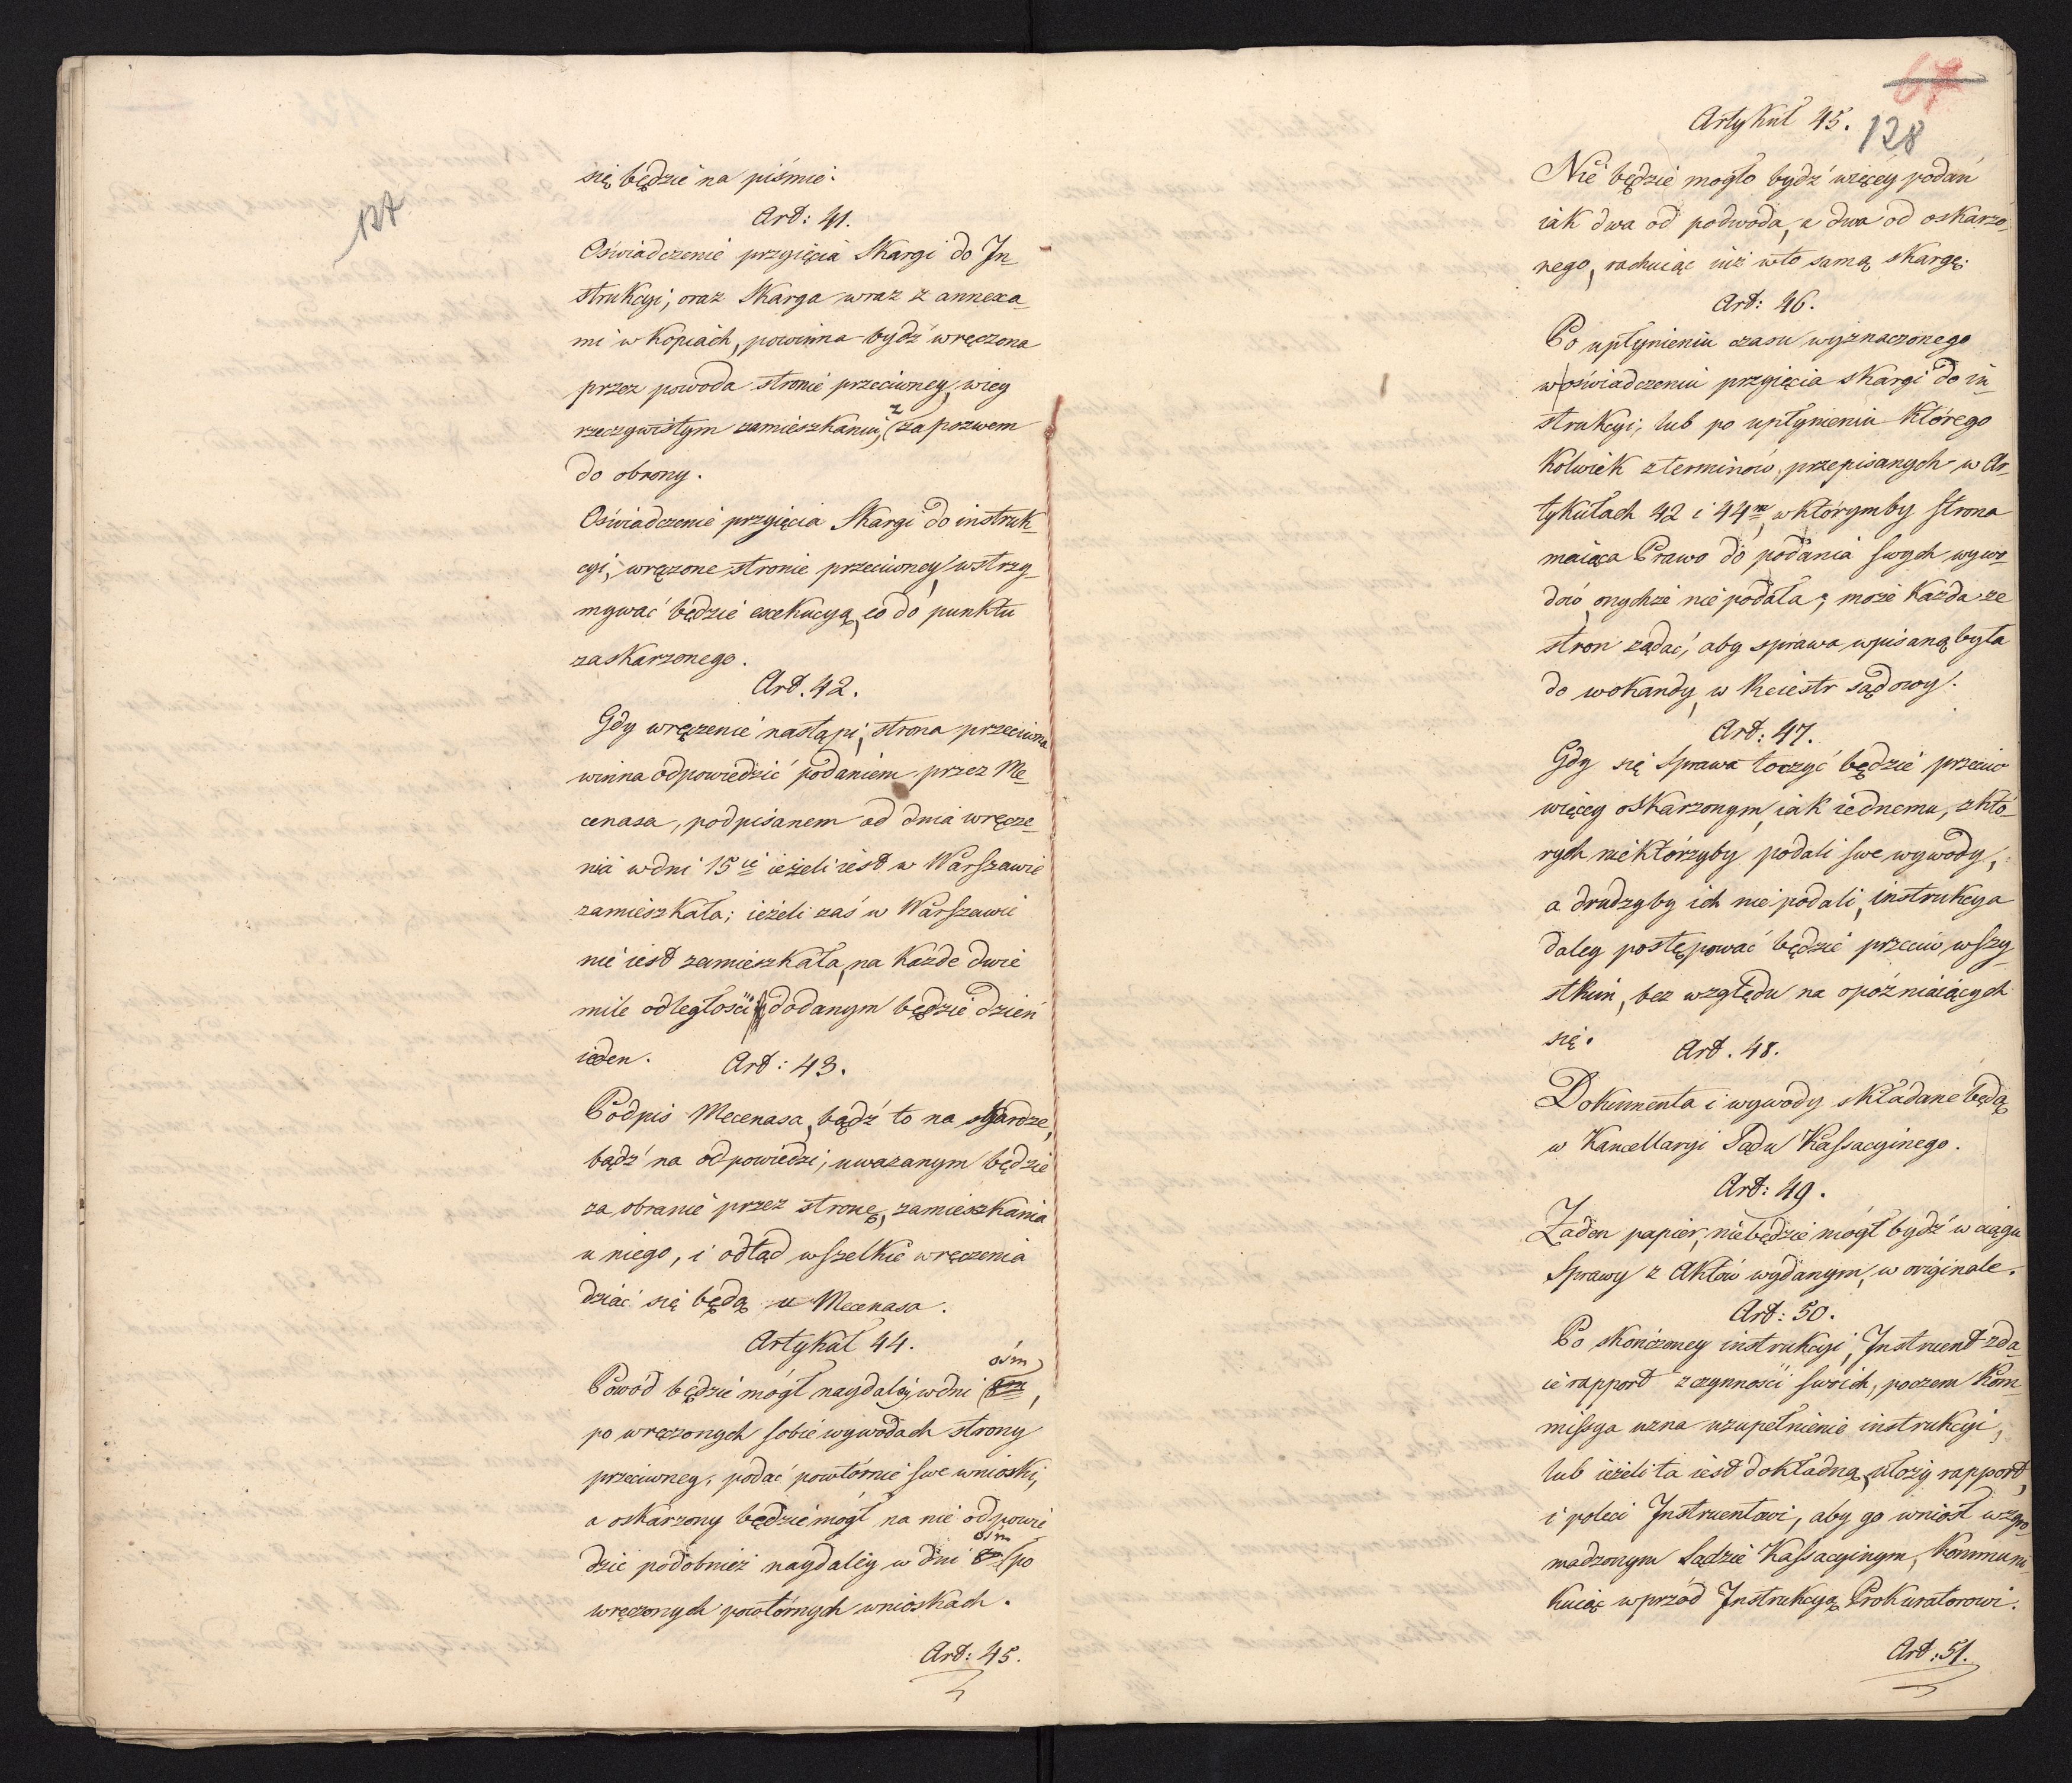 127
się będzie na piśmie.
Art: 41.
Oświadczenie przyięcia Skargi do In-
strukcyi, oraz Skarga wraz z annexa-
mi w kopiach, powinna bydź wręczona
przez powoda stronie przeciwney, w iey
rzeczywistym zamieszkaniu, z zapozwem
do obrony.
Oświadczenie przyięcia Skargi do instruk-
cyi, wręczone stronie przeciwney, wstrzy-
mywać będzie exekucyą, co do punktu
zaskarzonego.
Art. 42.
Gdy wręczenie nastąpi, strona przeciwna
winna odpowiedzić podaniem przez Me-
cenasa, podpisanem od dnia wręcze-
nia w dni 15 ieżeli iest w Warszawie
zamieszkała; ieżeli zaś w Warszawie
nie iest zamieszkała, na każde dwie
mile odległości dodanym będzie dzień
ieden.
Art: 43.
Podpis Mecenasa, bądź to na skardze,
bądź na odpowiedzi, uwazanym będzie
za obranie przez stronę, zamieszkania
u niego, i odtąd wszelkie wręczenia
dziać się będą u Mecenasa.
Artykuł 44.
Powód będzie mógł naydaléy w dni ośm,
po wręczonych sobie wywodach strony
przeciwney, podać powtórnie swe wnioski,
a oskarzony będzie mógł na nie odpowie
dzic podobnież naydaléy w dni ośm po
wręczonych powtórnych wnioskach.
Art: 45.
67
128
Artykuł 45.
Nie będzie mogło bydź więcéy podań
iak dwa od podwoda, a dwa od oskarzo-
nego, rachuiąc iuż w to samą skargę.
Art: 46.
Po upłynieniu czasu wyznaczonego
w oświadczeniu przyięcia skargi do in-
strukcyi, lub po upłynieniu którego
kolwiek z terminów, przepisanych w Ar-
tykułach 42 i 44m, w którymby strona
maiąca Prawo do podania swych wywo-
dów, onychże nie podała, może każda ze
stron żądać, aby sprawa wpisaną była
do wokandy, w Reiestr sądowy.
Art: 47.
Gdy się sprawa toczyć będzie przeciw
więcey oskarzonym, iak iednemu, z któ-
rych niektórzyby podali swe wywody,
a drudzyby ich nie podali, instrukcya
daley postępować będzie przeciw wszy-
stkim, bez względu na opóźniaiących
się.
Art. 48.
Dokumenta i wywody składane będą
w Kancellaryi Sądu Kassacyinego.
Art: 49.
Żaden papier, nie będzie mógł bydź w ciągu
Sprawy z Aktów wydanym, w originale.
Art: 50.
Po skończoney instrukcyi, Instruent zda-
ie rapport z czynności swoich, poczem Kom-
missya uzna uzupełnienie instrukcyi,
lub ieżeli ta iest dokładną, ułoży rapport,
i poleci Instruentowi, aby go wniósł w zgro-
madzonym Sądzie Kassacyinym, kommuni-
kuiąc wprzód Instrukcyą Prokuratorowi.
Art: 51.